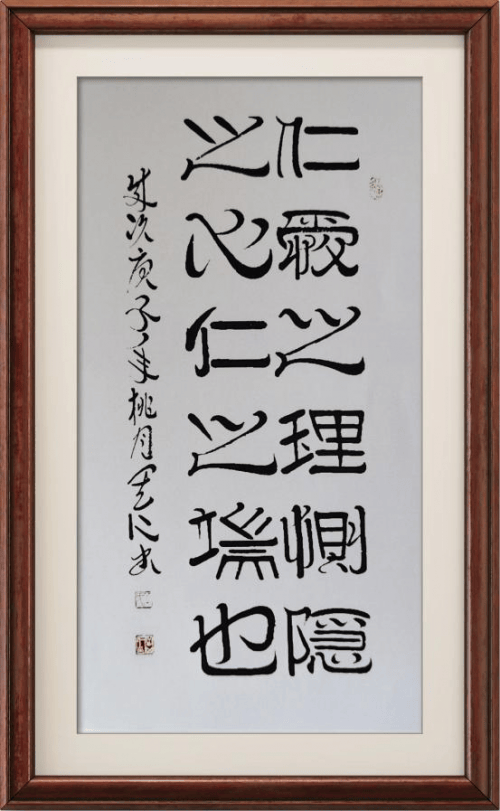 仁愛之理惻隱
之心仁之端也
歲次庚子年桃月 書